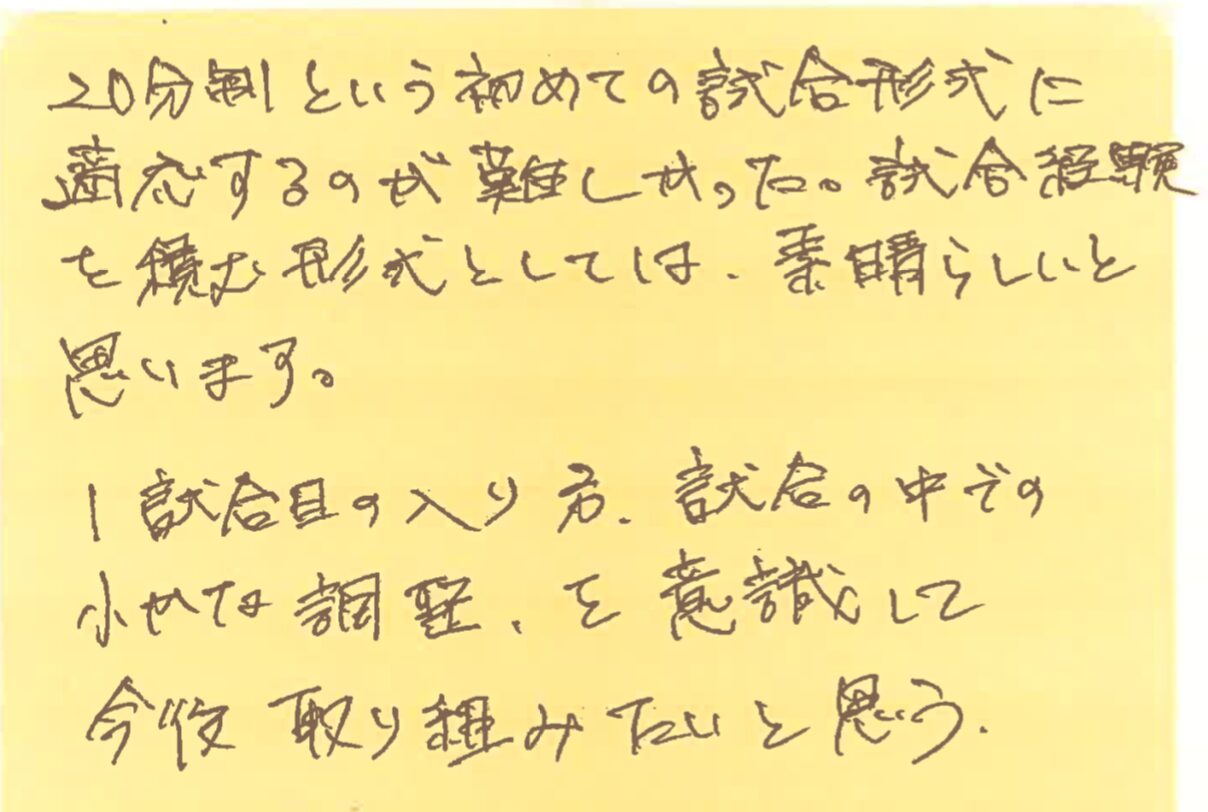 20分制という初めての試合形式に
適応するのが難しかった。試合経験
を積む形式としては、素晴らしいと
思います。
1試合目の入り方、試合の中での
小さな調整、を意識して
今後取り組みたいと思う.